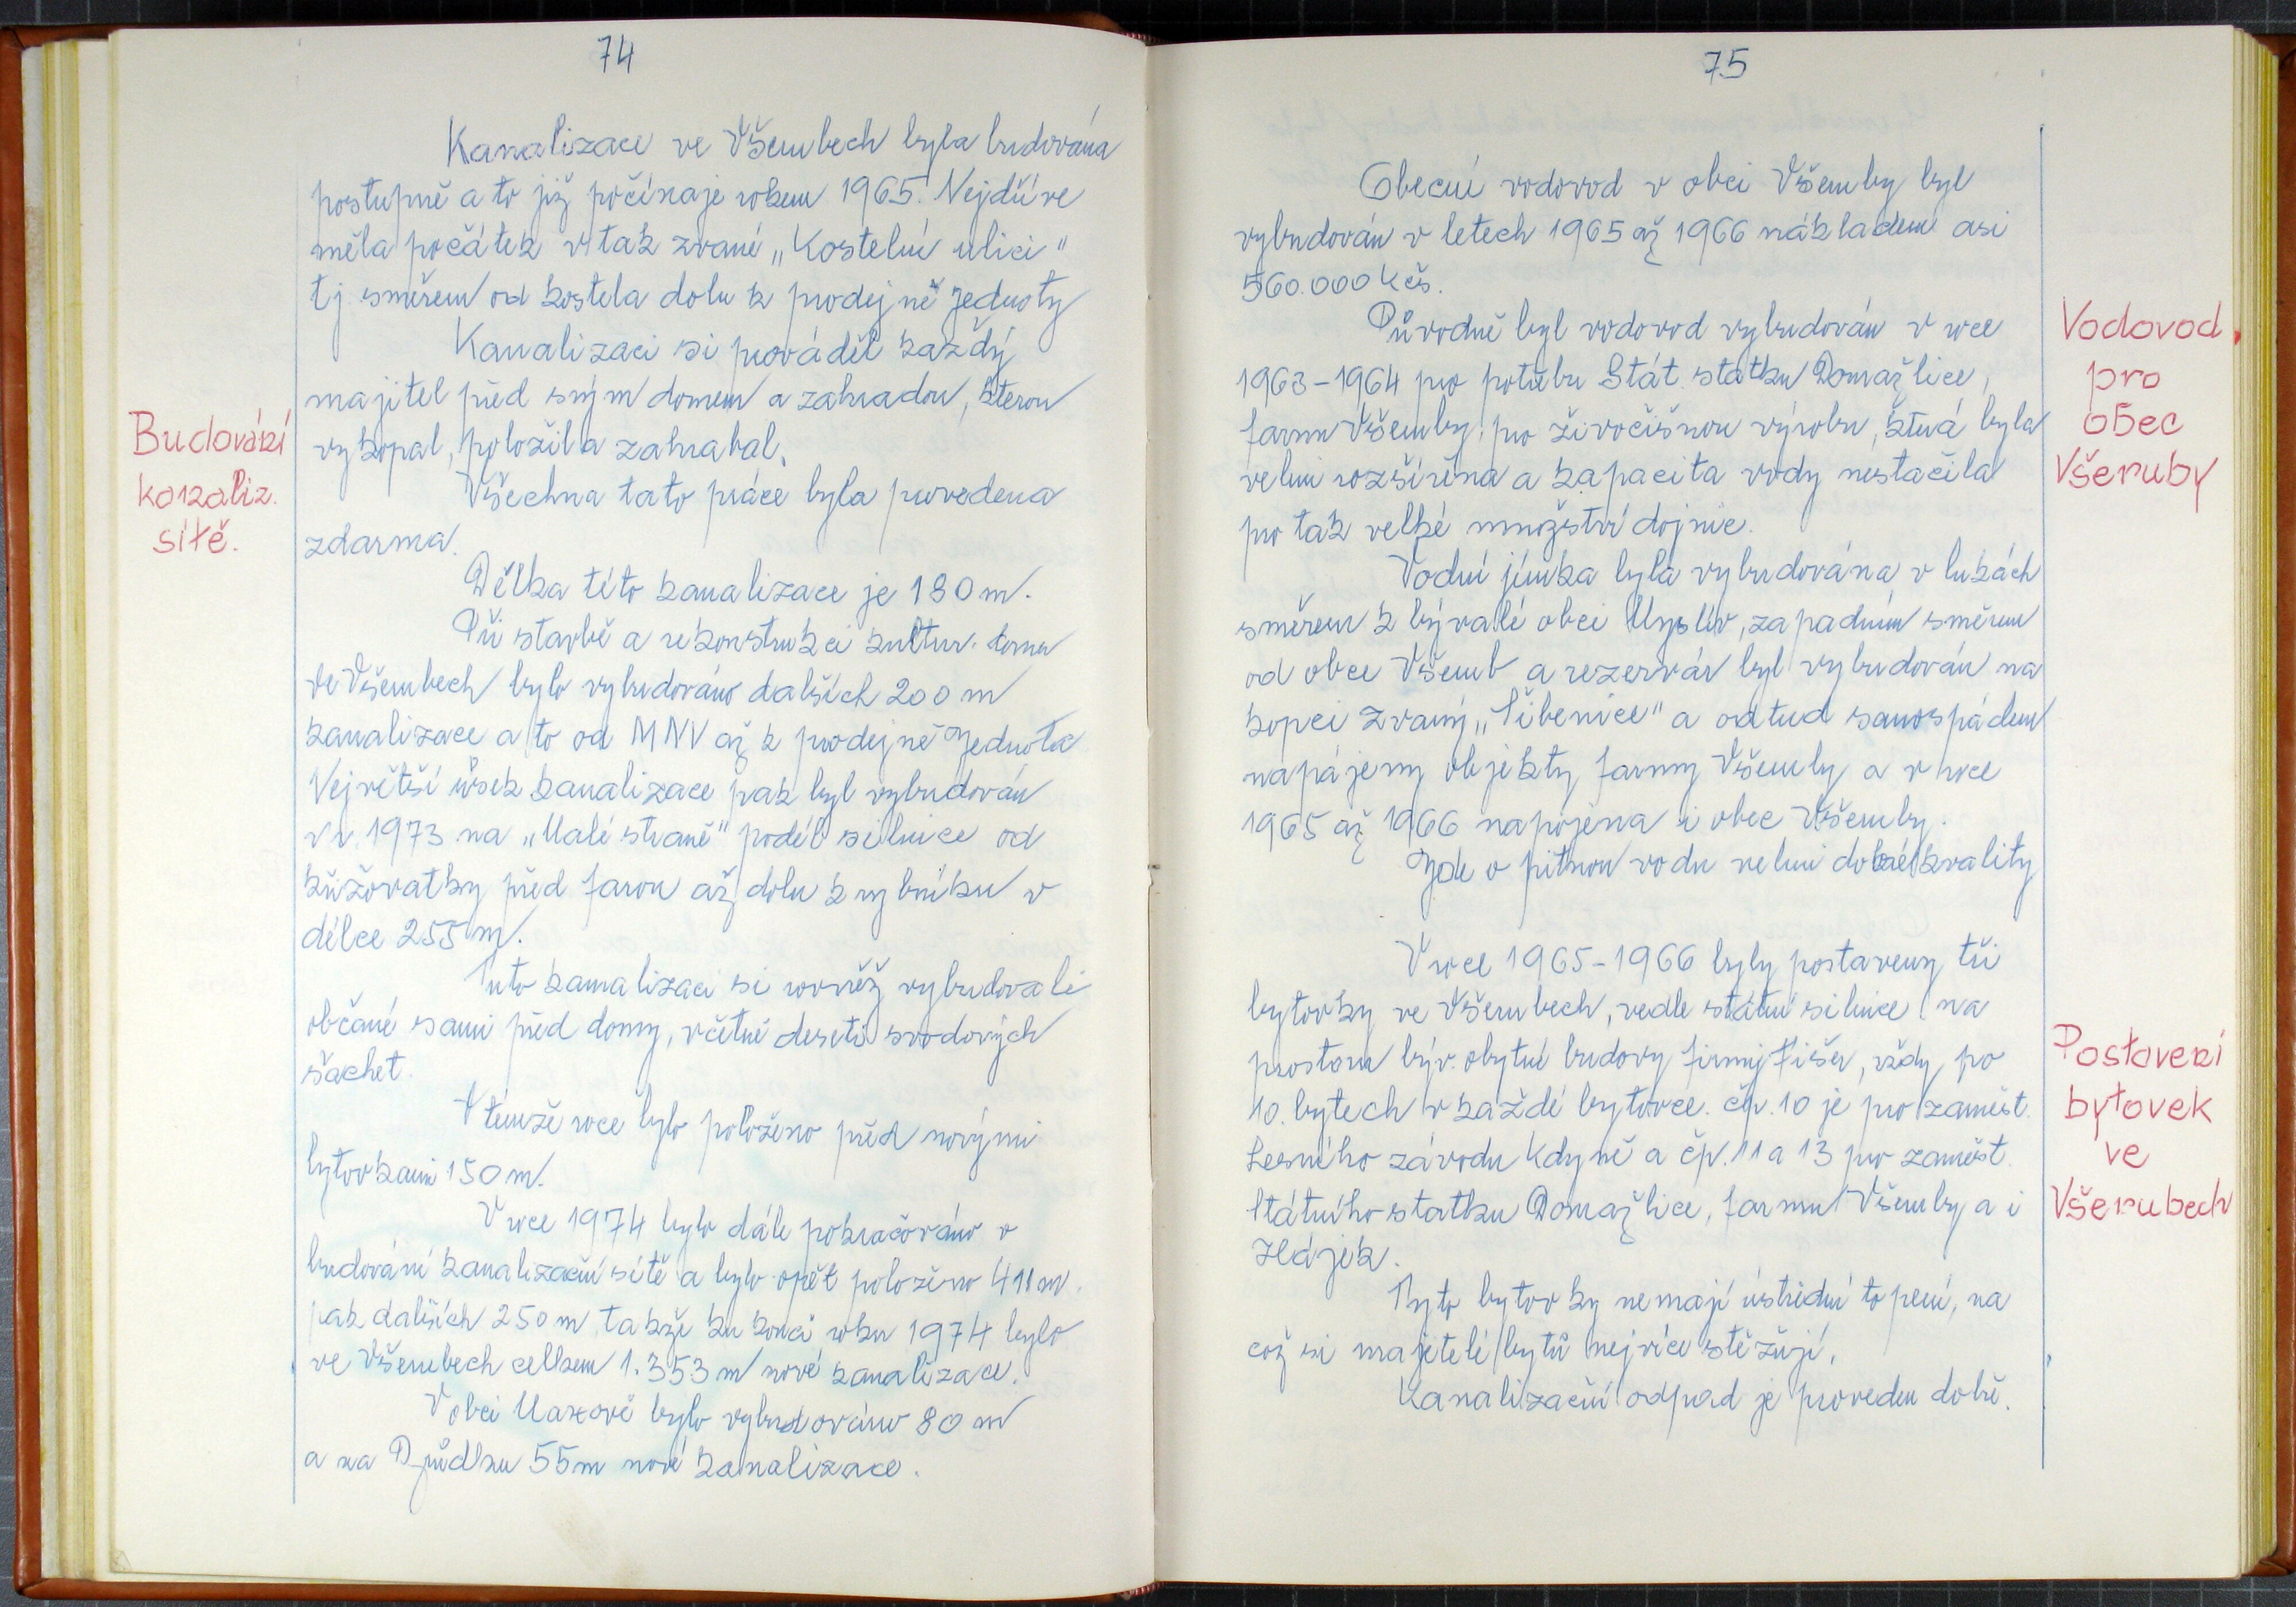 74
Kanalizace ve Všerubech byla budována
postupně a to již počínaje rokem 1965. Nejdříve
měla počátek v tak zvané „Kostelní ulici"
tj. směrem od kostela dolu k prodejně Jednoty
Kanalizaci si prováděl každý
majitel před svým domem a zahradou, kterou
vykopal, položil a zahrabal.
Všechna tato práce byla provedena
zdarma.
Délka této kanalizace je 180 m.
Při stavbě a rekonstrukci kultur. domu
ve Všerubech bylo vybudováno dalších 200 m
kanalizace a to od MNV až k prodejně Jednota
Největší úsek kanalizace pak byl vybudován
v r. 1973 na „Malé straně" podél silnice od
křižovatky před farou až dolu k rybníku v
délce 255 m.
Tuto kanalizaci si rovněž vybudovali
občané sami před domy, včetně deseti svodových
šachet.
V temže roce bylo položeno před novými
bytovkami 150 m.
V roce 1974 bylo dále pokračováno v
budování kanalizační sítě a bylo opět položeno 411 m.
pak dalších 250 m, takže ku konci roku 1974 bylo
ve Všerubech celkem 1.353 m nové kanalizace.
V obci Maxově bylo vybudováno 80 m
a na 55 m nové kanalizace.
Budování
kanaliz.
sítě.
75
Obecní vodovod v obci Všeruby byl
vybudován v letech 1965 až 1966 nákladem asi
560.000 Kčs.
Původně byl vodovod vybudován v roce
1963-1964 pro potřebu Stát. statku Domažlice,
farmu Všeruby, pro živočišnou výrobu, která byla
velmi rozšířena a kapacita vody nestačila
pro tak velké množství dojnic.
Vodní jímka byla vybudována v lukách
směrem k bývalé obci Myslív, západním směrem
od obce Všerub a rezervár byl vybudován na
kopci zvaný „Šibenice" a odtud samospádem
napájeny objekty farmy Všeruby a v roce
1965 až 1966 napojena i obec Všeruby.
Jde o pitnou vodu velmi dobré kvality
V roce 1965-1966 byly postaveny tři
bytovky ve Všerubech, vedle státní silnice na
prostoru býv. obytné budovy firmy Fišer, vždy po
10. bytech v každé bytovce. čp. 10 je pro zaměst.
Lesního závodu Kdyně a čp. 11 a 13 pro zaměst.
Státního statku Domažlice, farmu Všeruby a i
Hájek.
Tyto bytovky nemají ústřední topení, na
což si majitelé bytů nejvíce stěžují.
Kanalizační odpad je proveden dobře.
Vodovod
pro
obec
Všeruby
Postavení
bytovek
ve
Všerubech